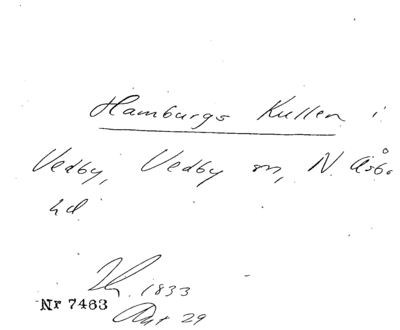 Hamburgs Kullen i
Vedby, Vedby sn, N. Åsbo
hd
1833
Nr 7463
Akt 29